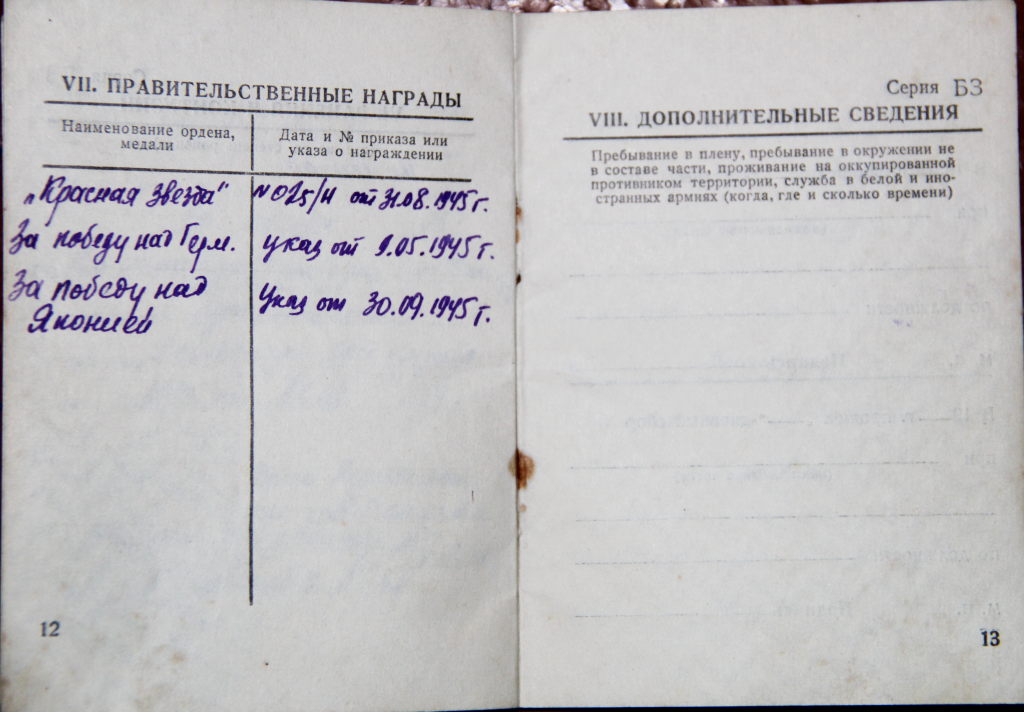 VII. ПРАВИТЕЛЬСТВЕННЫЕ НАГРАДЫ
Наименование ордена,
медали
Дата и № приказа или
указа о награждении
„Красная звезда" № 025/Н от 31.08.1945 г.
За победу над Герм. указ от 9.05.1945 г.
За победу над
Японией
Указ от 30.09.1945 г.
12
Серия БЗ
VIII. ДОПОЛНИТЕЛЬНЫЕ СВЕДЕНИЯ
Пребывание в плену, пребывание в окружении не
в составе части, проживание на оккупированной
противником территории, служба в белой и ино-
странных армиях (когда, где и сколько времени)
13